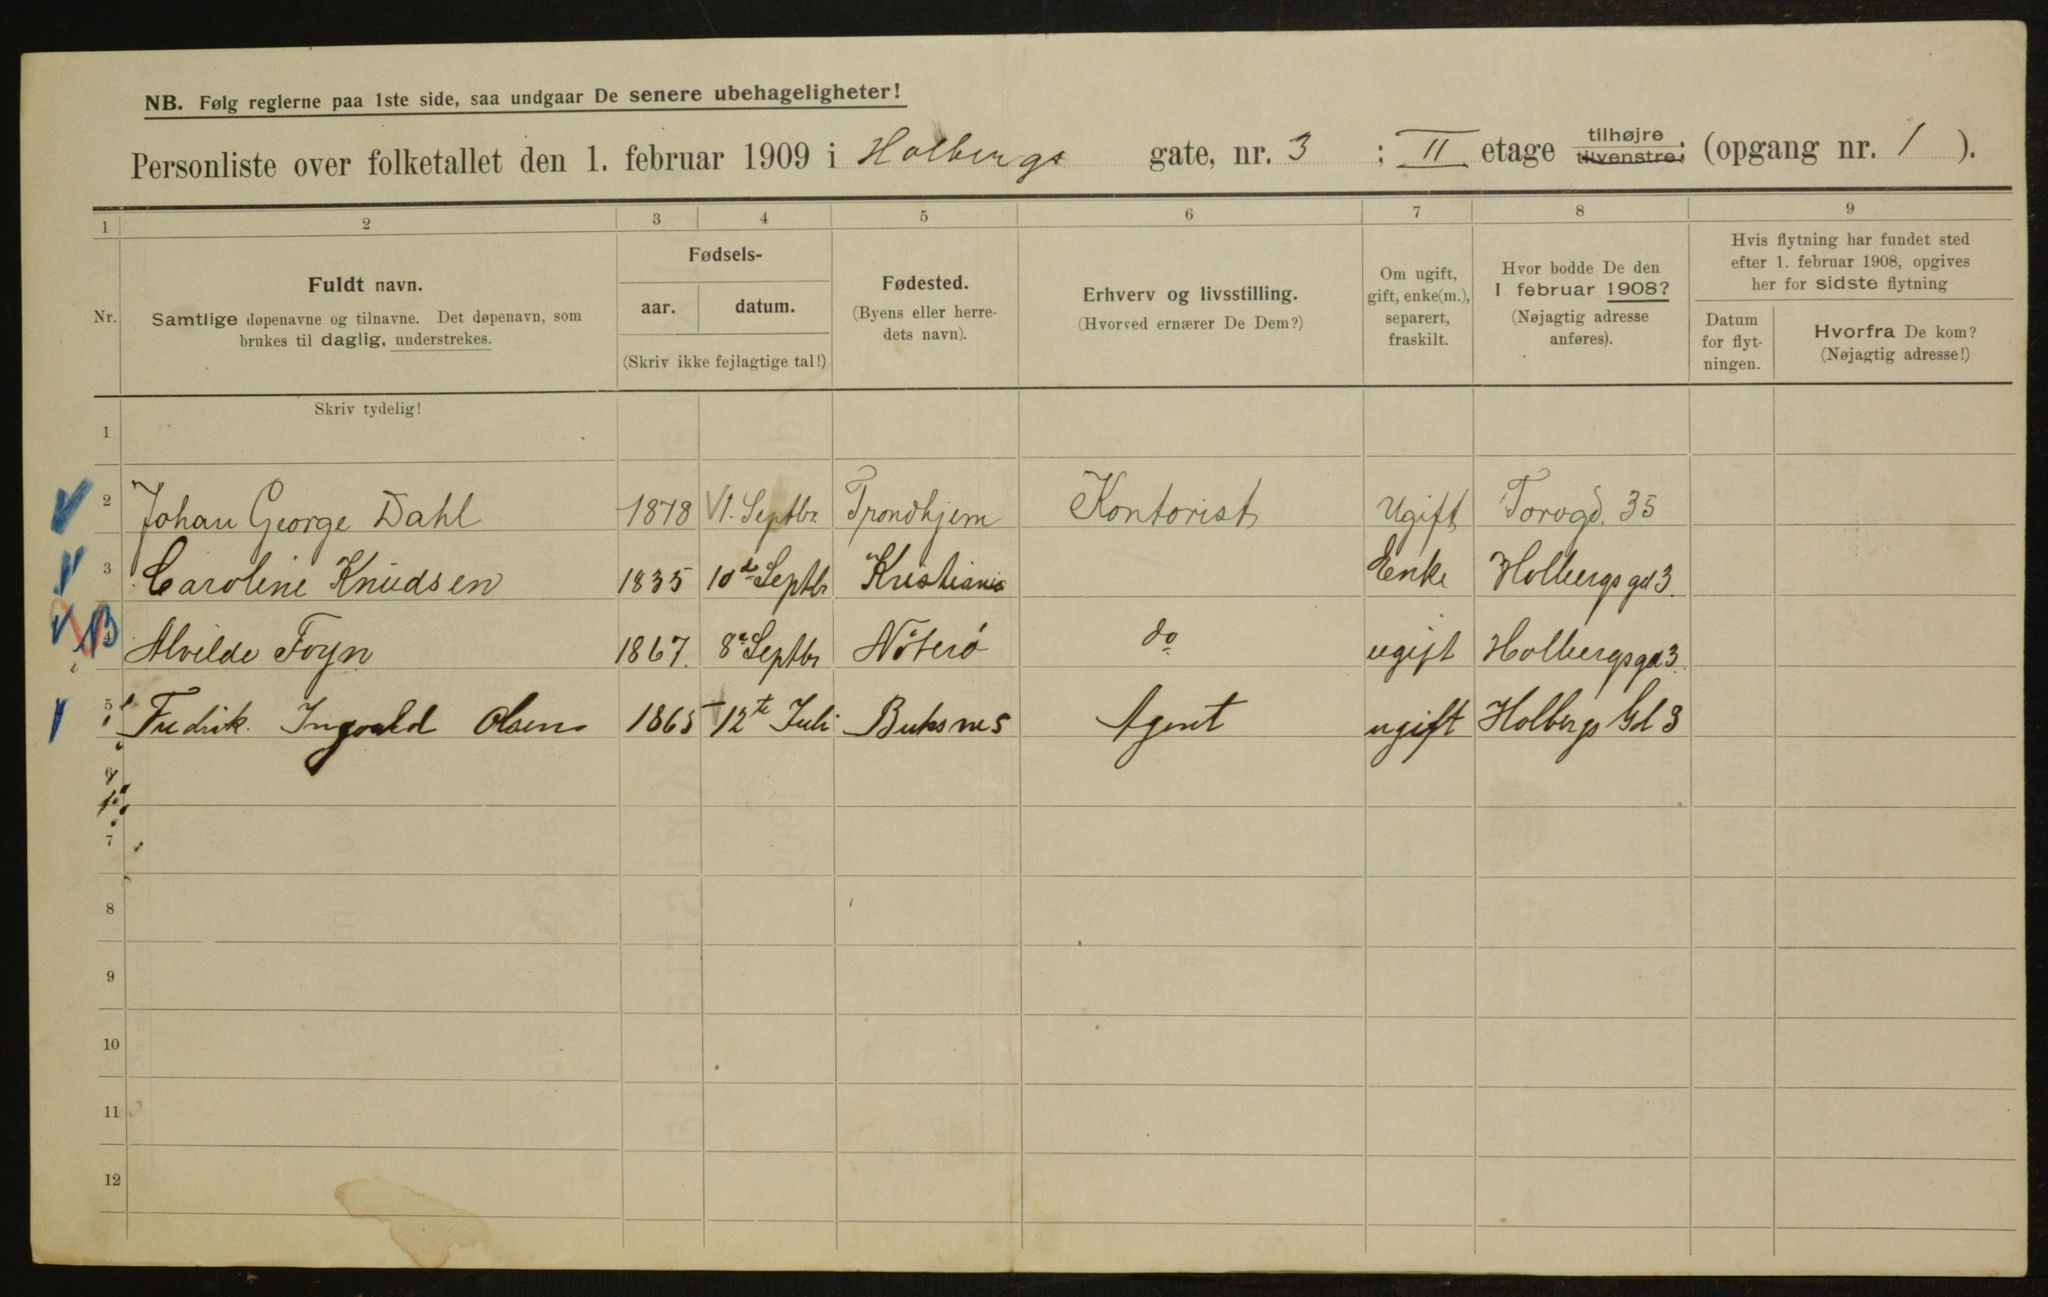 NB. Følg reglerne paa 1ste side, saa undgaar De senere ubehageligheter!
Personliste over folketallet den 1. februar 1909 i Holbergs gate, nr. 3 ; II etage tilhøjre tilvenstre; (opgang nr. 1 ).
1 2 3 4 5 6 7 8 9
Nr.
Fuldt navn.
Samtlige døpenavne og tilnavne. Det døpenavn, som
brukes til daglig, understrekes.
Fødsels-
aar. datum.
(Skriv ikke fejlagtige tal!)
Fødested.
(Byens eller herre-
dets navn).
Erhverv og livsstilling.
(Hvorved ernærer De Dem?)
Om ugift,
gift, enke(m.),
separert,
fraskilt.
Hvor bodde De den
1 februar 1908?
(Nøjagtig adresse
anføres).
Hvis flytning har fundet sted
efter 1. februar 1908, opgives
her for sidste flytning
Datum
for flyt-
ningen.
Hvorfra De kom?
(Nøjagtig adresse!)
Skriv tydelig!
1
2 Johan George Dahl 1878 Septbr Trondhjem Kontorist Ugift Torvgd. 35
3 Caroline Knudsen 1835 10de Septbr Kristiania Enke Holbergs gd 3.
4 Alvilde Foyn 1867. 8de Septbr Nöterö do ugift Holbergsgd 3.
5 Fredrik Ingvald Olsen 1865 12te Juli Buksnes Agent ugift Holbergs Gd 3
6
7
8
9
10
11
12